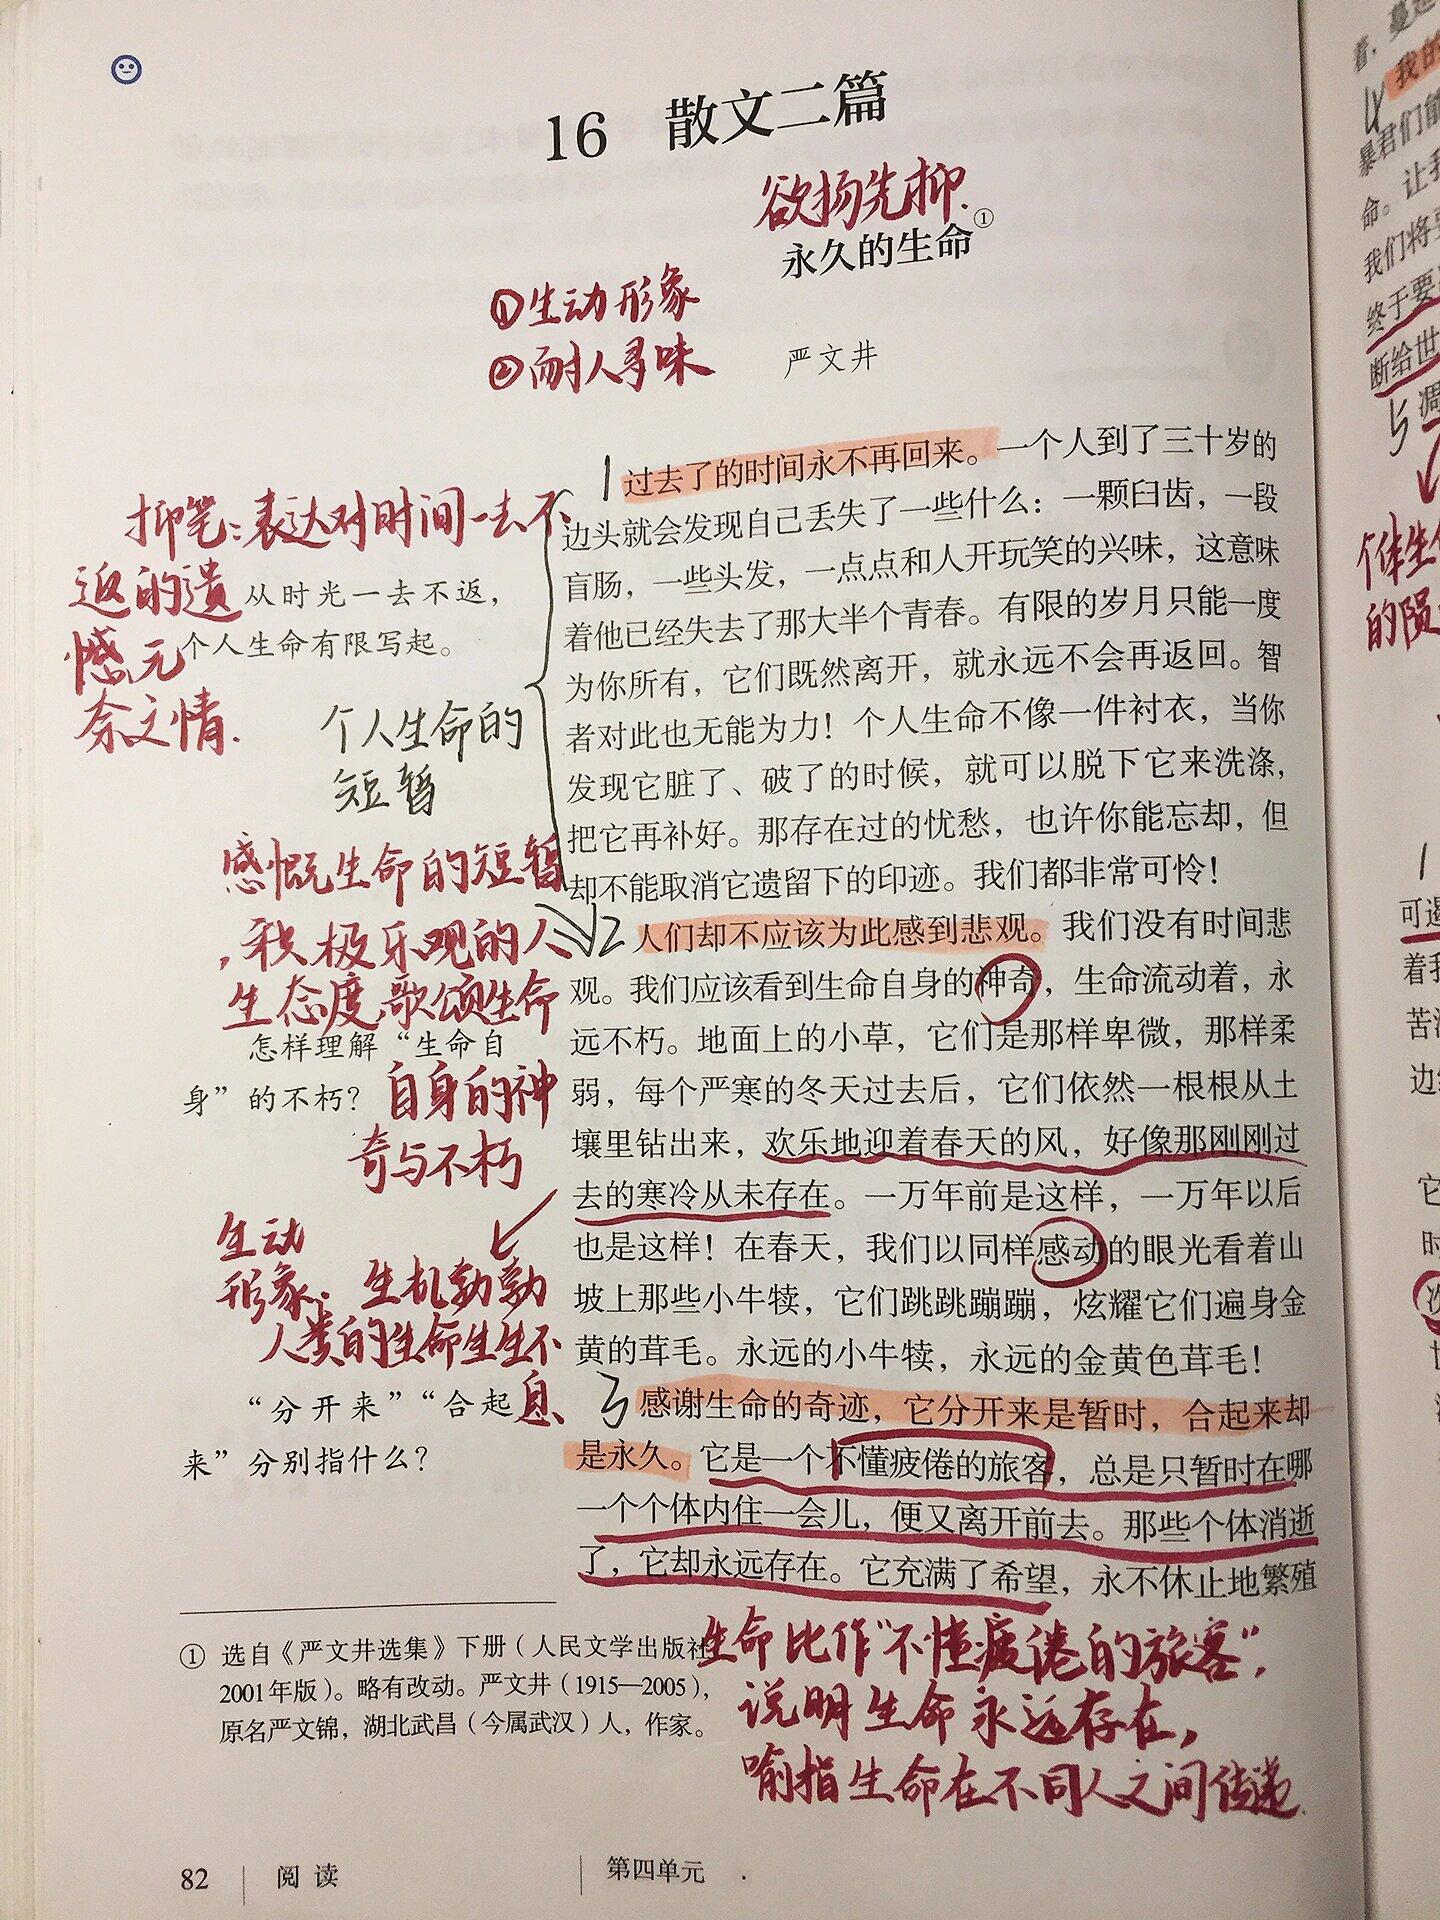 16 散文二篇
欲扬先抑.
永久的生命①
①生动形象
②耐人寻味
严文井
1 过去了的时间永不再回来。一个人到了三十岁的
边头就会发现自己丢失了一些什么：一颗臼齿，一段
盲肠，一些头发，一点点和人开玩笑的兴味，这意味
着他已经失去了那大半个青春。有限的岁月只能一度
为你所有，它们既然离开，就永远不会再返回。智
者对此也无能为力！个人生命不像一件衬衣，当你
发现它脏了、破了的时候，就可以脱下它来洗涤，
把它再补好。那存在过的忧愁，也许你能忘却，但
却不能取消它遗留下的印迹。我们都非常可怜！
2 人们却不应该为此感到悲观。我们没有时间悲
观。我们应该看到生命自身的神奇，生命流动着，永
远不朽。地面上的小草，它们是那样卑微，那样柔
弱，每个严寒的冬天过去后，它们依然一根根从土
壤里钻出来，欢乐地迎着春天的风，好像那刚刚过
去的寒冷从未存在。一万年前是这样，一万年以后
也是这样！在春天，我们以同样感动的眼光看着山
坡上那些小牛犊，它们跳跳蹦蹦，炫耀它们遍身金
黄的茸毛。永远的小牛犊，永远的金黄色茸毛！
3 感谢生命的奇迹，它分开来是暂时，合起来却
是永久。它是一个不懂疲倦的旅客，总是只暂时在哪
一个个体内住一会儿，便又离开前去。那些个体消逝
了，它却永远存在。它充满了希望，永不休止地繁殖
抑笔：表达对时间一去不
返的遗
憾无
奈之情.
从时光一去不返，
个人生命有限写起。
个人生命的
短暂
感慨生命的短暂
，积极乐观的人
生态度,歌颂生命
怎样理解“生命自
身”的不朽？
自身的神
奇与不朽
生动
形象：生机勃勃
人类的生命生生不
息
“分开来”“合起
来”分别指什么？
① 选自《严文井选集》下册（人民文学出版社
2001年版）。略有改动。严文井（1915—2005），
原名严文锦，湖北武昌（今属武汉）人，作家。
生命比作“不懂疲倦的旅客”，
说明生命永远存在，
喻指生命在不同人之间传递.
82 阅读 第四单元
着，蔓延
我的
4
暴君们能
命。让我
我们将要
终于要
断给世
5 凋
个体生命
的陨
1
可遏
着我
苦
边
它
时